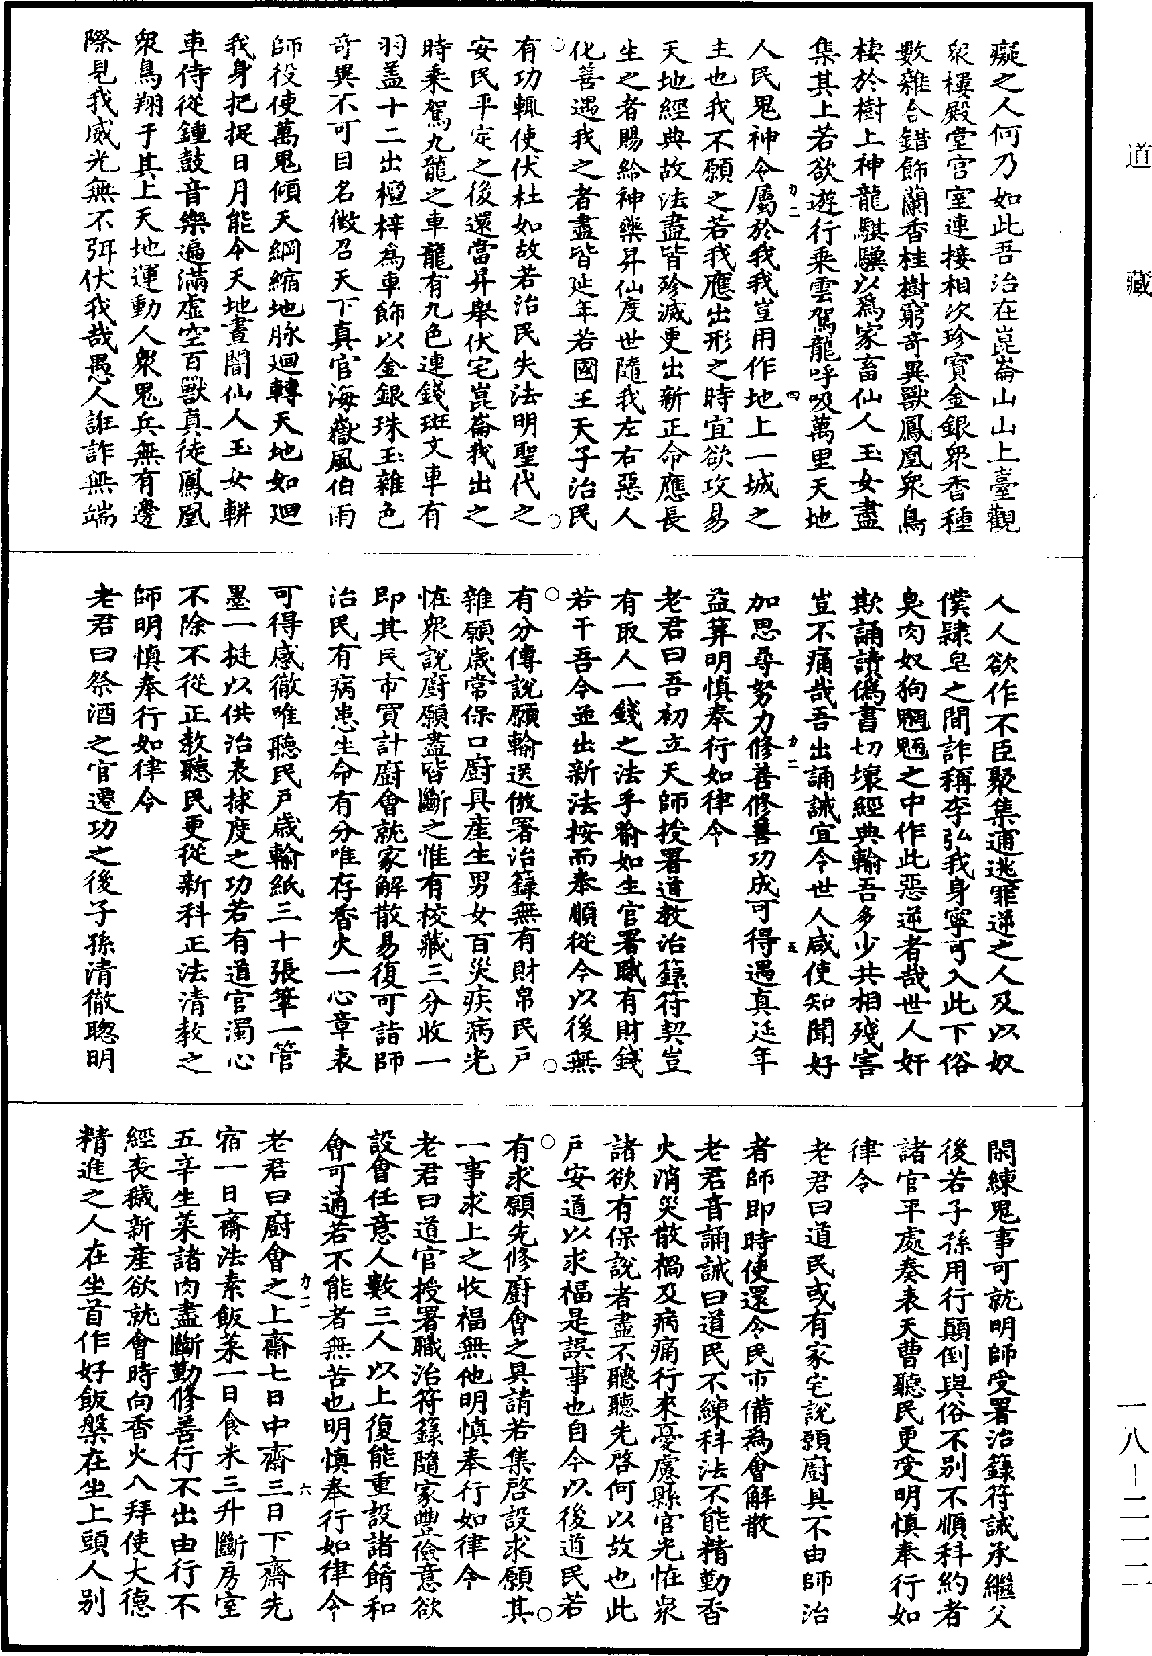 道藏
癡之人何乃如此吾治在崑崙山山上臺觀
衆樓殿堂宮室連接相次珍寶金銀衆香種
數雜合錯飾蘭香桂樹窮奇異獸鳳凰衆鳥
棲於樹上神龍騏驥以爲家畜仙人玉女盡
集其上若欲遊行乘雲駕龍呼吸萬里天地
人民鬼神令屬於我我豈用作地上一城之
主也我不願之若我應出形之時宜欲攻易
天地經典故法盡皆殄滅更出新正命應長
生之者賜給神藥昇仙度世隨我左右惡人
化善遇我之者盡皆延年若國王天子治民
有功輒使伏杜如故若治民失法明聖代之
安民平定之後還當昇舉伏宅崑崙我出之
時乘駕九龍之車龍有九色連錢斑文車有
羽蓋十二出檀梓爲車飾以金銀珠玉雜色
奇異不可目名徵召天下真官海嶽風伯雨
師役使萬鬼傾天綱縮地脉迴轉天地如迴
我身把捉日月能令天地晝闇仙人玉女輧
車侍從鍾鼓音樂遍滿虛空百獸真徒鳳凰
衆鳥翔于其上天地運動人衆鬼兵無有邊
際見我威光無不弭伏我哉愚人誑詐無端
人人欲作不臣聚集逋逃罪逆之人及以奴
僕隸皂之間詐稱李弘我身寧可入此下俗
臭肉奴狗魍魎之中作此惡逆者哉世人奸
欺誦讀僞書切壞經典輸吾多少共相殘害
豈不痛哉吾出誦誡宜令世人咸使知聞好
加思尋努力修善修善功成可得遇真延年
益筭明慎奉行如律令
老君曰吾初立天師授署道教治籙符契豈
有取人一錢之法乎喻如生官署職有財錢
若干吾今並出新法按而奉順從今以後無
有分傳說願輸送倣署治籙無有財帛民戶
雜願歲常保口廚具產生男女百災疾病光
怪衆說廚願盡皆斷之惟有校藏三分收一
即其民市買計廚會就家解散易復可詣師
治民有病患生命有分唯存香火一心章表
可得感徹唯聽民戶歲輸紙三十張筆一管
墨一挺以供治表捄度之功若有道官濁心
不除不從正教聽民更從新科正法清教之
師明慎奉行如律令
老君曰祭酒之官遷功之後子孫清徹聰明
閑練鬼事可就明師受署治籙符誡承繼父
後若子孫用行顛倒與俗不別不順科約者
諸官平處奏表天曹聽民更受明慎奉行如
律令
老君曰道民或有家宅說願廚具不由師治
者師即時使還令民市備爲會解散
老君音誦誡曰道民不練科法不能精勤香
火消災散禍及病痛行來憂慮縣官光怪衆
諸欲有保說者盡不聽聽先啓何以故也此
戶安道以求福是誤事也自今以後道民若
有求願先修廚會之具請若集啓設求願其
一事求上之收福無他明慎奉行如律令
老君曰道官授署職治符籙隨家豐儉意欲
設會任意人數三人以上復能重設諸餚和
會可通若不能者無苦也明慎奉行如律令
老君曰廚會之上齋七日中齋三日下齋先
宿一日齋法素飯菜一日食米三升斷房室
五辛生菜諸肉盡斷勤修善行不出由行不
經喪穢新產欲就會時向香火八拜使大德
精進之人在坐首作好飯盤在坐上頭人別
力二
四
力二
五
力二
六
一八—二一二